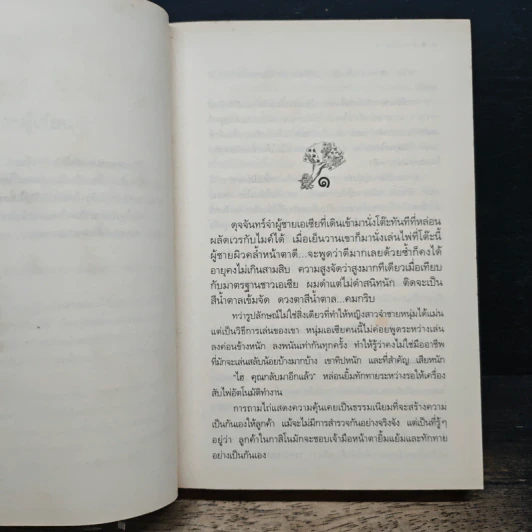 ๑
ดุจจันทร์จำผู้ชายเอเชียที่เดินเข้ามานั่งโต๊ะทันทีที่หล่อน
ผลัดเวรกับไมค์ได้ เมื่อเย็นวานเขาก็มานั่งเล่นไพ่ที่โต๊ะนี้
ผู้ชายผิวคล้ำหน้าตาดี...จะพูดว่าดีมากเลยด้วยซ้ำก็คงได้
อายุคงไม่เกินสามสิบ ความสูงจัดว่าสูงมากทีเดียวเมื่อเทียบ
กับมาตรฐานชาวเอเชีย ผมดำแต่ไม่ดำสนิทนัก ติดจะเป็น
สีน้ำตาลเข้มจัด ดวงตาสีน้ำตาล...คมกริบ
ทว่ารูปลักษณ์ไม่ใช่สิ่งเดียวที่ทำให้หญิงสาวจำชายหนุ่มได้แม่น
แต่เป็นวิธีการเล่นของเขา หนุ่มเอเชียคนนี้ไม่ค่อยพูดระหว่างเล่น
ลงค่อนข้างหนัก ลงพนันเท่ากันทุกครั้ง ทำให้รู้ว่าคงไม่ใช่มืออาชีพ
ที่มักจะเล่นสลับน้อยบ้างมากบ้าง เขาทิปหนัก และที่สำคัญ...เสียหนัก
"ไฮ คุณกลับมาอีกแล้ว" หล่อนยิ้มทักทายระหว่างรอให้เครื่อง
สับไพ่อัตโนมัติทำงาน
การถามไถ่แสดงความคุ้นเคยเป็นธรรมเนียมที่จะสร้างความ
เป็นกันเองให้ลูกค้า แม้จะไม่มีการสำรวจกันอย่างจริงจัง แต่เป็นที่รู้ๆ
อยู่ว่า ลูกค้าในกาสิโนมักจะชอบเจ้ามือหน้าตายิ้มแย้มและทักทาย
อย่างเป็นกันเอง